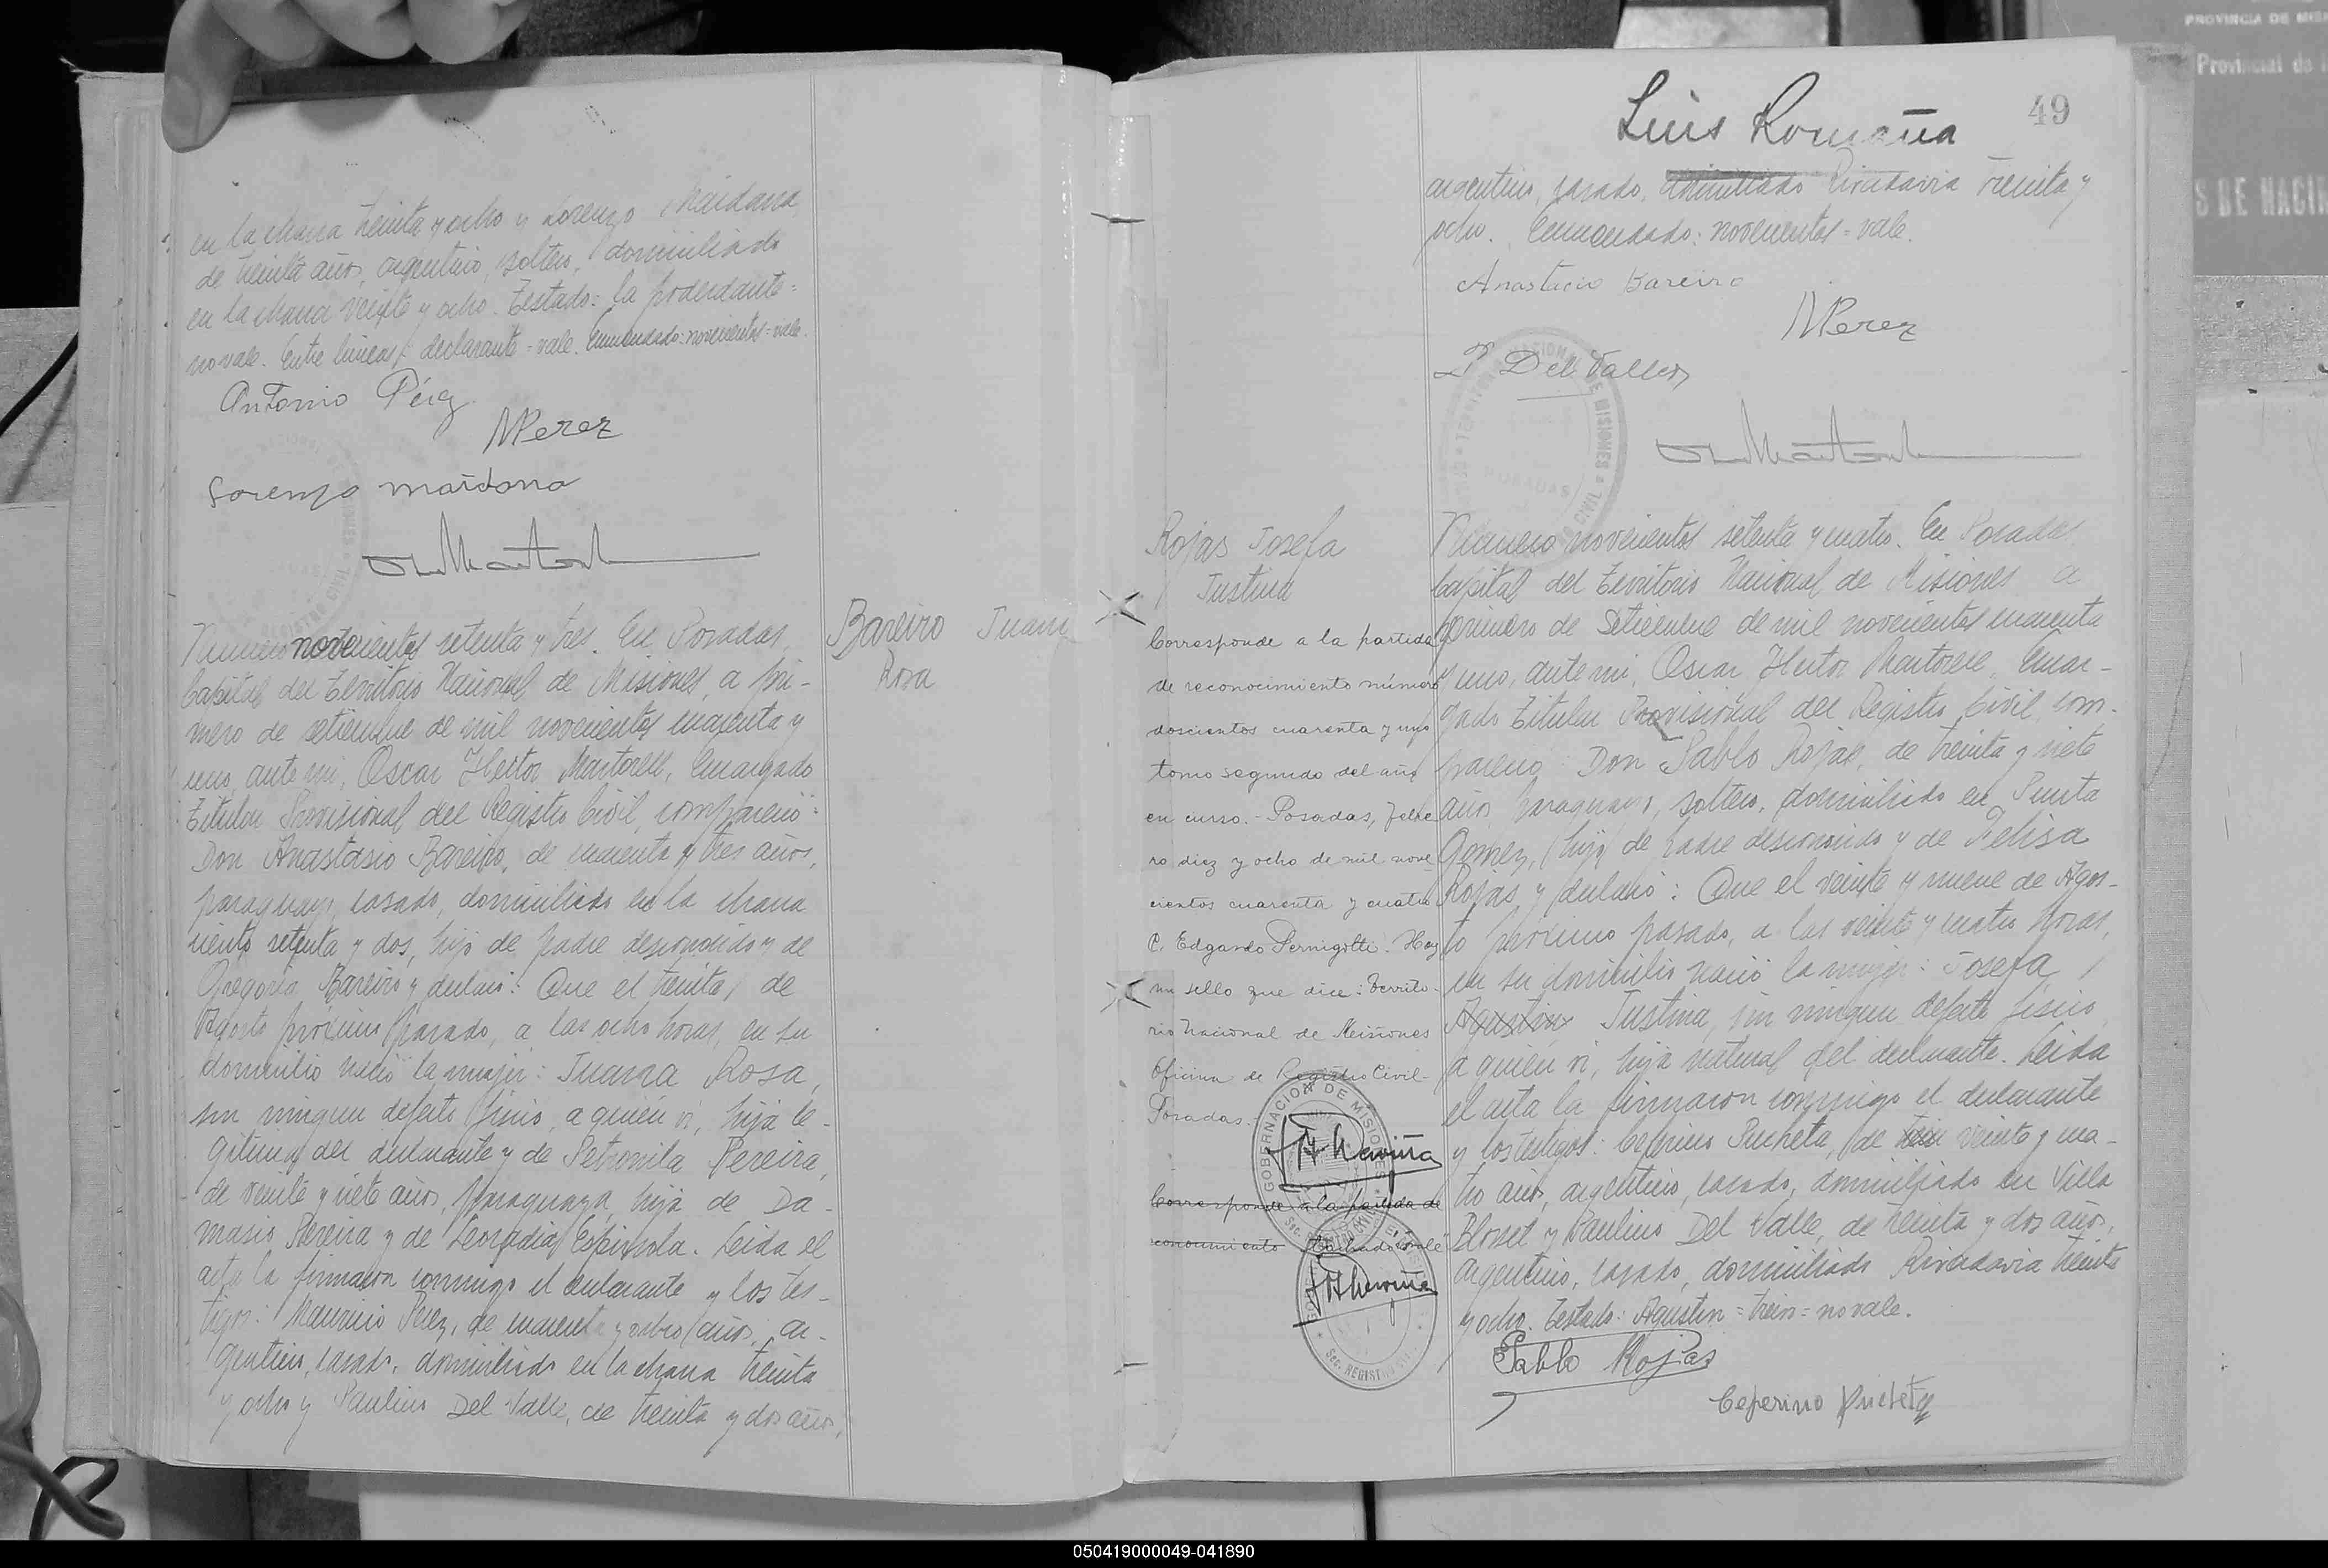 en la chacra treinta y ocho y Lorenzo Maidana,
de treinta años, argentino, soltero, domiciliado
en la chacra veinte y ocho. Testado: la poderdante=
no vale. Entre lineas: declarante=vale. Enmendado: novecientos=vale.
Antonio Pérez
MPerez
Lorenzo Maidana
Numero novecientos setenta y tres. En Posadas,
Capital del Territorio Nacional de Misiones, a pri-
mero de setiembre de mil novecientos cuarenta y
uno, ante mi, Oscar Hector Martorell, Encargado
Titular Provisional del Registro Civil, compareció:
Don Anastasio Bareiro, de cuarenta y tres años,
paraguayo, casado, domiciliado en la chacra
ciento setenta y dos, hijo de padre desconocido y de
Gregoria Bareiro y declaró: Que el treinta de
Agosto próximo pasado, a las ocho horas, en su
domicilio nació la mujer: Juana Rosa,
sin ningun defecto fisico, a quién vi, hija le-
gitima del declarante y de Petronila Pereira,
de veinte y siete años, paraguaya, hija de Da-
masio Pereira y de Leocadia Espinola. Leida el
acta la firmaron conmigo el declarante y los tes-
tigos: Mauricio Perez, de cuarenta y años, ar-
gentino, casado, domiciliado en la chacra treinta
y ocho y Paulino Del Valle, de treinta y dos años,
Bareiro Juana
Rosa
49
Luis Romaña
argentino, casado, domiciliado Rivadavia treinta y
ocho. Enmendado: novecientos=vale.
Anastacio Bareiro
MPerez
P Del Valle
Rojas Josefa
Justina
Corresponde a la partida
de reconocimiento número
doscientos cuarenta y uno
tomo segundo del año
en curso.- Posadas, febre
ro diez y ocho de mil nove
cientos cuarenta y cuatro
C. Edgardo Pernigotti. Hay
un sello que dice: Territo-
rio Nacional de Misiones
Oficina de Registro Civil-
Posadas.-
GOBERNACION DE MISIONES
Corresponde a la partida de
SEC. REGISTRO CIVIL
Numero novecientos setenta y cuatro. En Posadas
Capital del Territorio Nacional de Misiones a
primero de Setiembre de mil novecientos cuarenta
y uno, ante mi, Oscar Hector Martorell, Encar-
gado Titular Provisional del Registro Civil, com-
pareció: Don Pablo Rojas, de treinta y siete
años, paraguayo, soltero, domiciliado en Punta
Gomez, hijo de padre desconocido y de Felisa
Rojas, y declaró: Que el veinte y nueve de Agos-
to próximo pasado, a las veinte y cuatro horas,
en su domicilio nació la mujer: Josefa
Agustin Justina, sin ningun defecto fisico,
a quién vi, hija natural del declarante. Leida
el acta la firmaron conmigo el declarante
y los testigos: Ceferino Pucheta, de trein veinte y cua-
tro años, argentino, casado, domiciliado en Villa
Blosset y Paulino Del Valle, de treinta y dos años,
argentino, casado, domiciliado Rivadavia treinta
y ocho. Testado: Agustin=trein=no vale.
Pablo Rojas
Ceferino Pucheta
PROVINCIA DE MISI
Provincial de
S DE NACIM
050419000049-041890